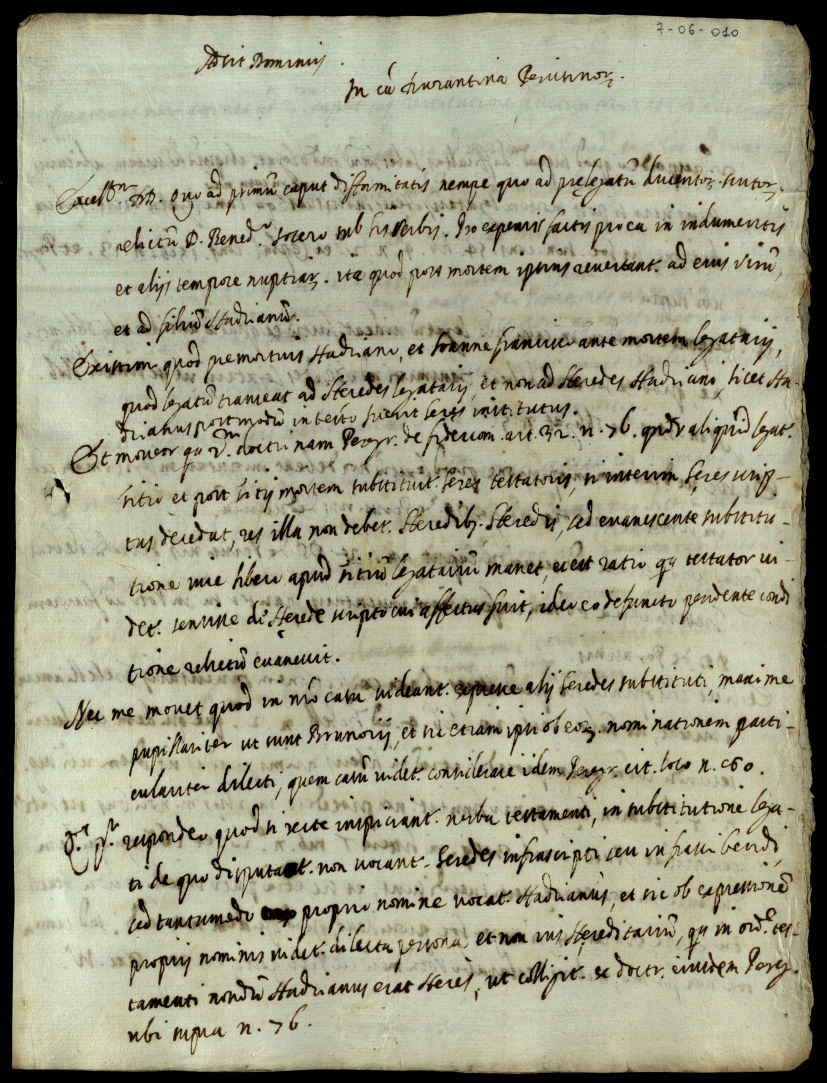 7-06-010
Adsit Dominus.
In câ firmantina Peritinorꝝ.
Excell.ᵐ DD. Quo ad primũ caput difformitatis nempe quo ad prelegatũ ducentorꝝ scutorꝝ
relictũ D. Bened.ᵃ socero sub his verbis. Pro expensis factis pro ea in indumentis
et alijs tempore nuptiarꝝ. ita quod post mortem ipsius revertant. ad eius virũ,
et ad filiũ Hadrianũ.
Existimo quod premortuis Hadriano, et Joanne francisco ante mortem legatarij,
quod legatũ transeat ad Heredes legatarij, et non ad Heredes Hadriani, licet Ha-
drianus postmodũ in testõ fuerit heres institutus.
Et moveor qa 2.ᵐ doctrinam Peregr. de fideicom. art. 32. n. 76. quãdo aliquid legat.
titio et post titij mortem substituit. heres testatoris, si interim heres scrip-
tus decedat, res illa non debet. Heredibꝫ Heredis, sed evanescente substitu-
tione inie libera apud titiũ legatariũ manet, et est ratio qa testator vi-
det. sensisse de Herede scripto cui affectus fuit, ideo eo defuncto pendente condi
tione relictũ evanuit.
Nec me movet quod in nrõ casu videant. expresse alij heredes substituti, maxime
pupillariter ut sunt Brunorij, et sic etiam ipsi ob eorꝝ nominationem parti-
culariter dilecti, quem casũ videt. considerare idem Peregr. cit. loco n. 60.
respondeo quod si recte inspiciant. verba testamenti, in substitutione lega-
ti de quo disputat. non vocant. heredes infrascripti seu infrascribendi,
sed tantumodo proprio nomine vocat. Hadrianus, et sic ob expressionẽ
proprij nominis videt. dilecta persona et non ius Hereditariũ, qa in ord.ᵉ tes-
tamenti nondũ Hadrianus erat Heres, ut colligit. ex doctr. eiusdem Pereg.
ubi supra n. 76.